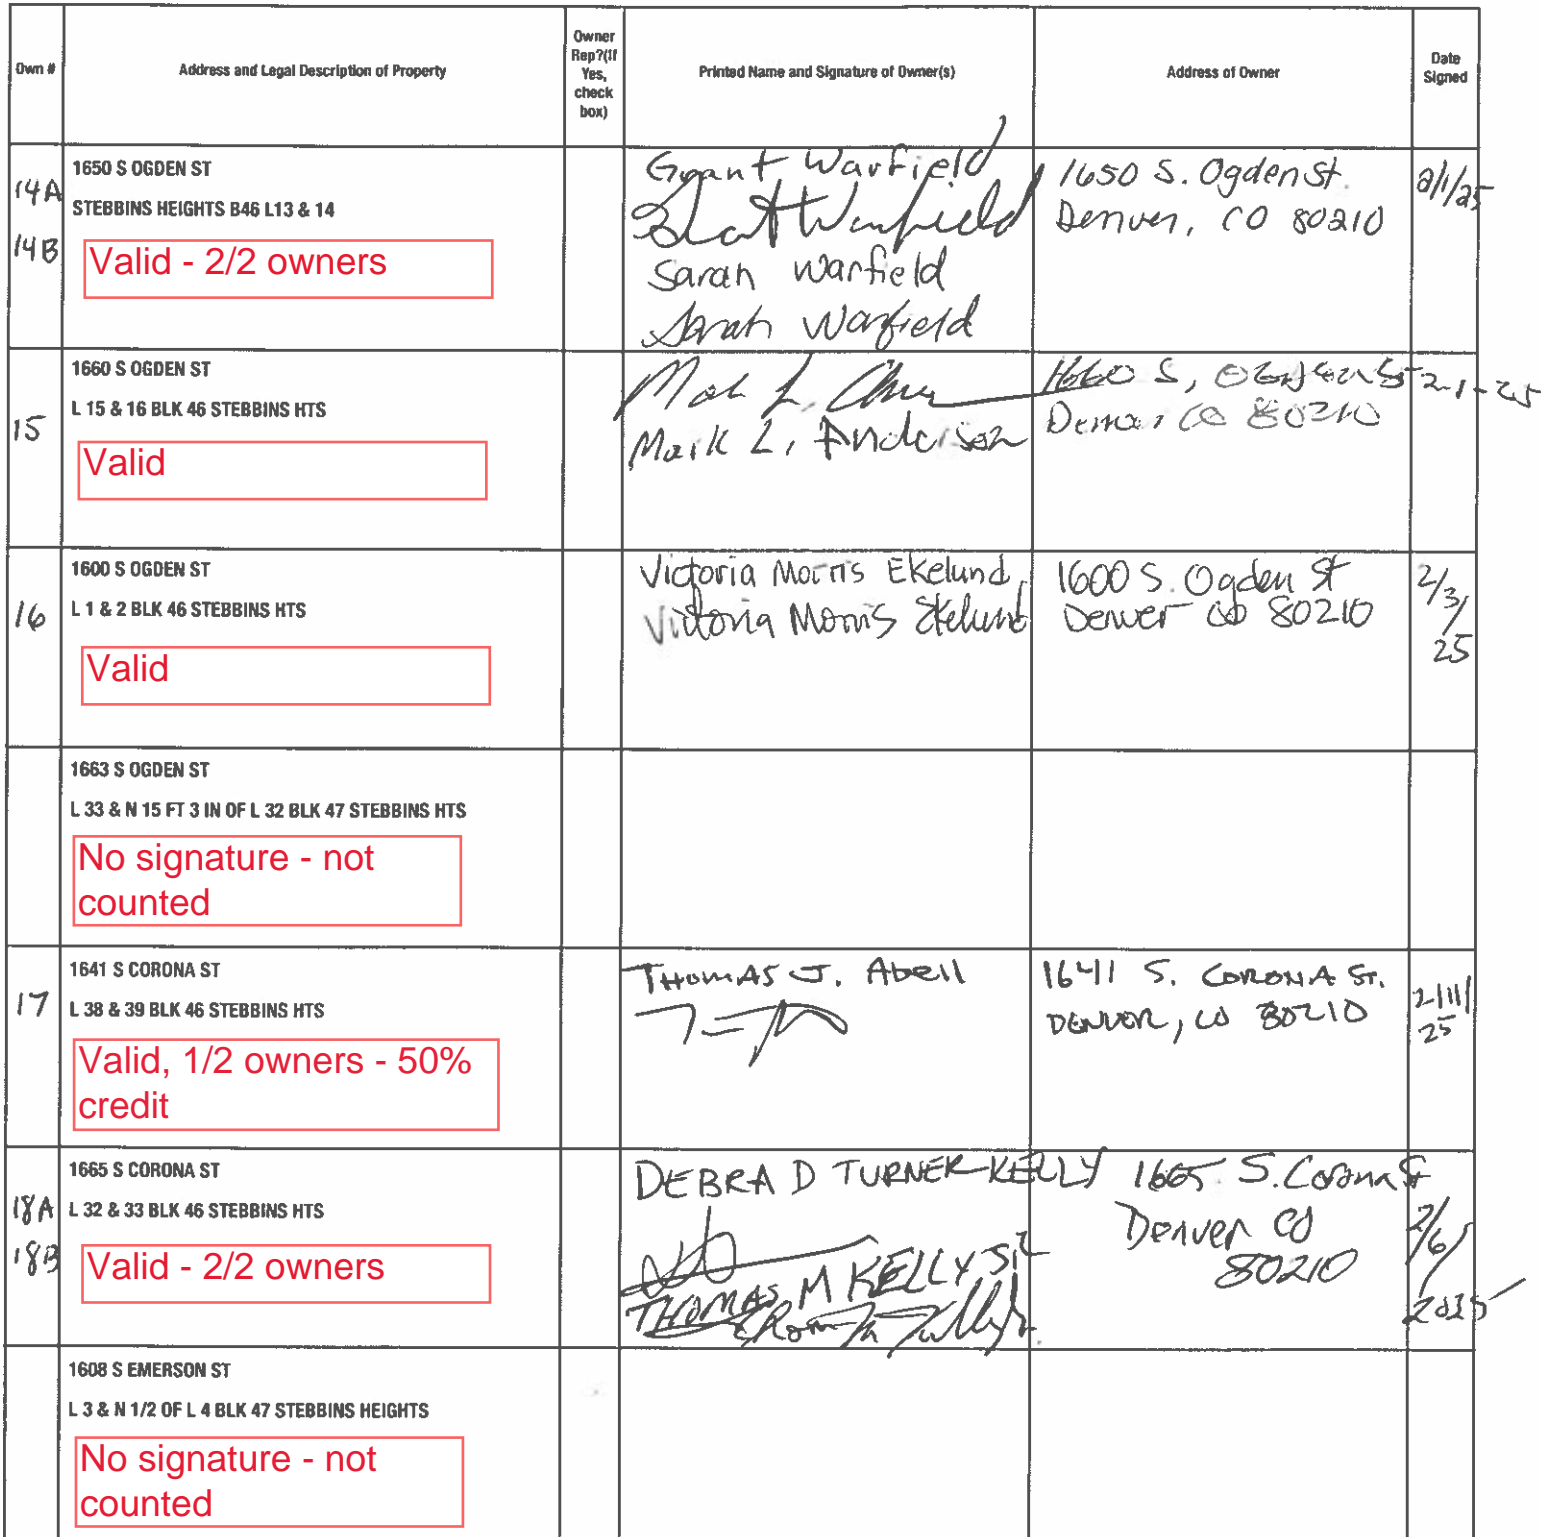 Own #
Address and Legal Description of Property
Owner
Rep?(If
Yes,
check
box)
Printed Name and Signature of Owner(s)
Address of Owner
Date
Signed
14A
14B
1650 S OGDEN ST
STEBBINS HEIGHTS B46 L13 & 14
Valid - 2/2 owners
Grant Warfield
Grant Warfield
Sarah Warfield
Sarah Warfield
1650 S. Ogden St.
Denver, CO 80210
2/1/25
15
1660 S OGDEN ST
L 15 & 16 BLK 46 STEBBINS HTS
Valid
Mark L.
Mark L. Anderson
1660 S, Ogden St
Denver CO 80210
2-1-25
16
1600 S OGDEN ST
L 1 & 2 BLK 46 STEBBINS HTS
Valid
Victoria Morris Ekelund
Victoria Morris Ekelund
1600 S. Ogden St
Denver CO 80210
2/3/
25
1663 S OGDEN ST
L 33 & N 15 FT 3 IN OF L 32 BLK 47 STEBBINS HTS
No signature - not
counted
17
1641 S CORONA ST
L 38 & 39 BLK 46 STEBBINS HTS
Valid, 1/2 owners - 50%
credit
THOMAS J. Abell
1641 S. CORONA ST.
DENVER, CO 80210
2/11/
25
18A
18B
1665 S CORONA ST
L 32 & 33 BLK 46 STEBBINS HTS
Valid - 2/2 owners
DEBRA D TURNER-KELLY
THOMAS M KELLY
1665 S. Corona St
Denver CO
80210
2/6/
2025
1608 S EMERSON ST
L 3 & N 1/2 OF L 4 BLK 47 STEBBINS HEIGHTS
No signature - not
counted